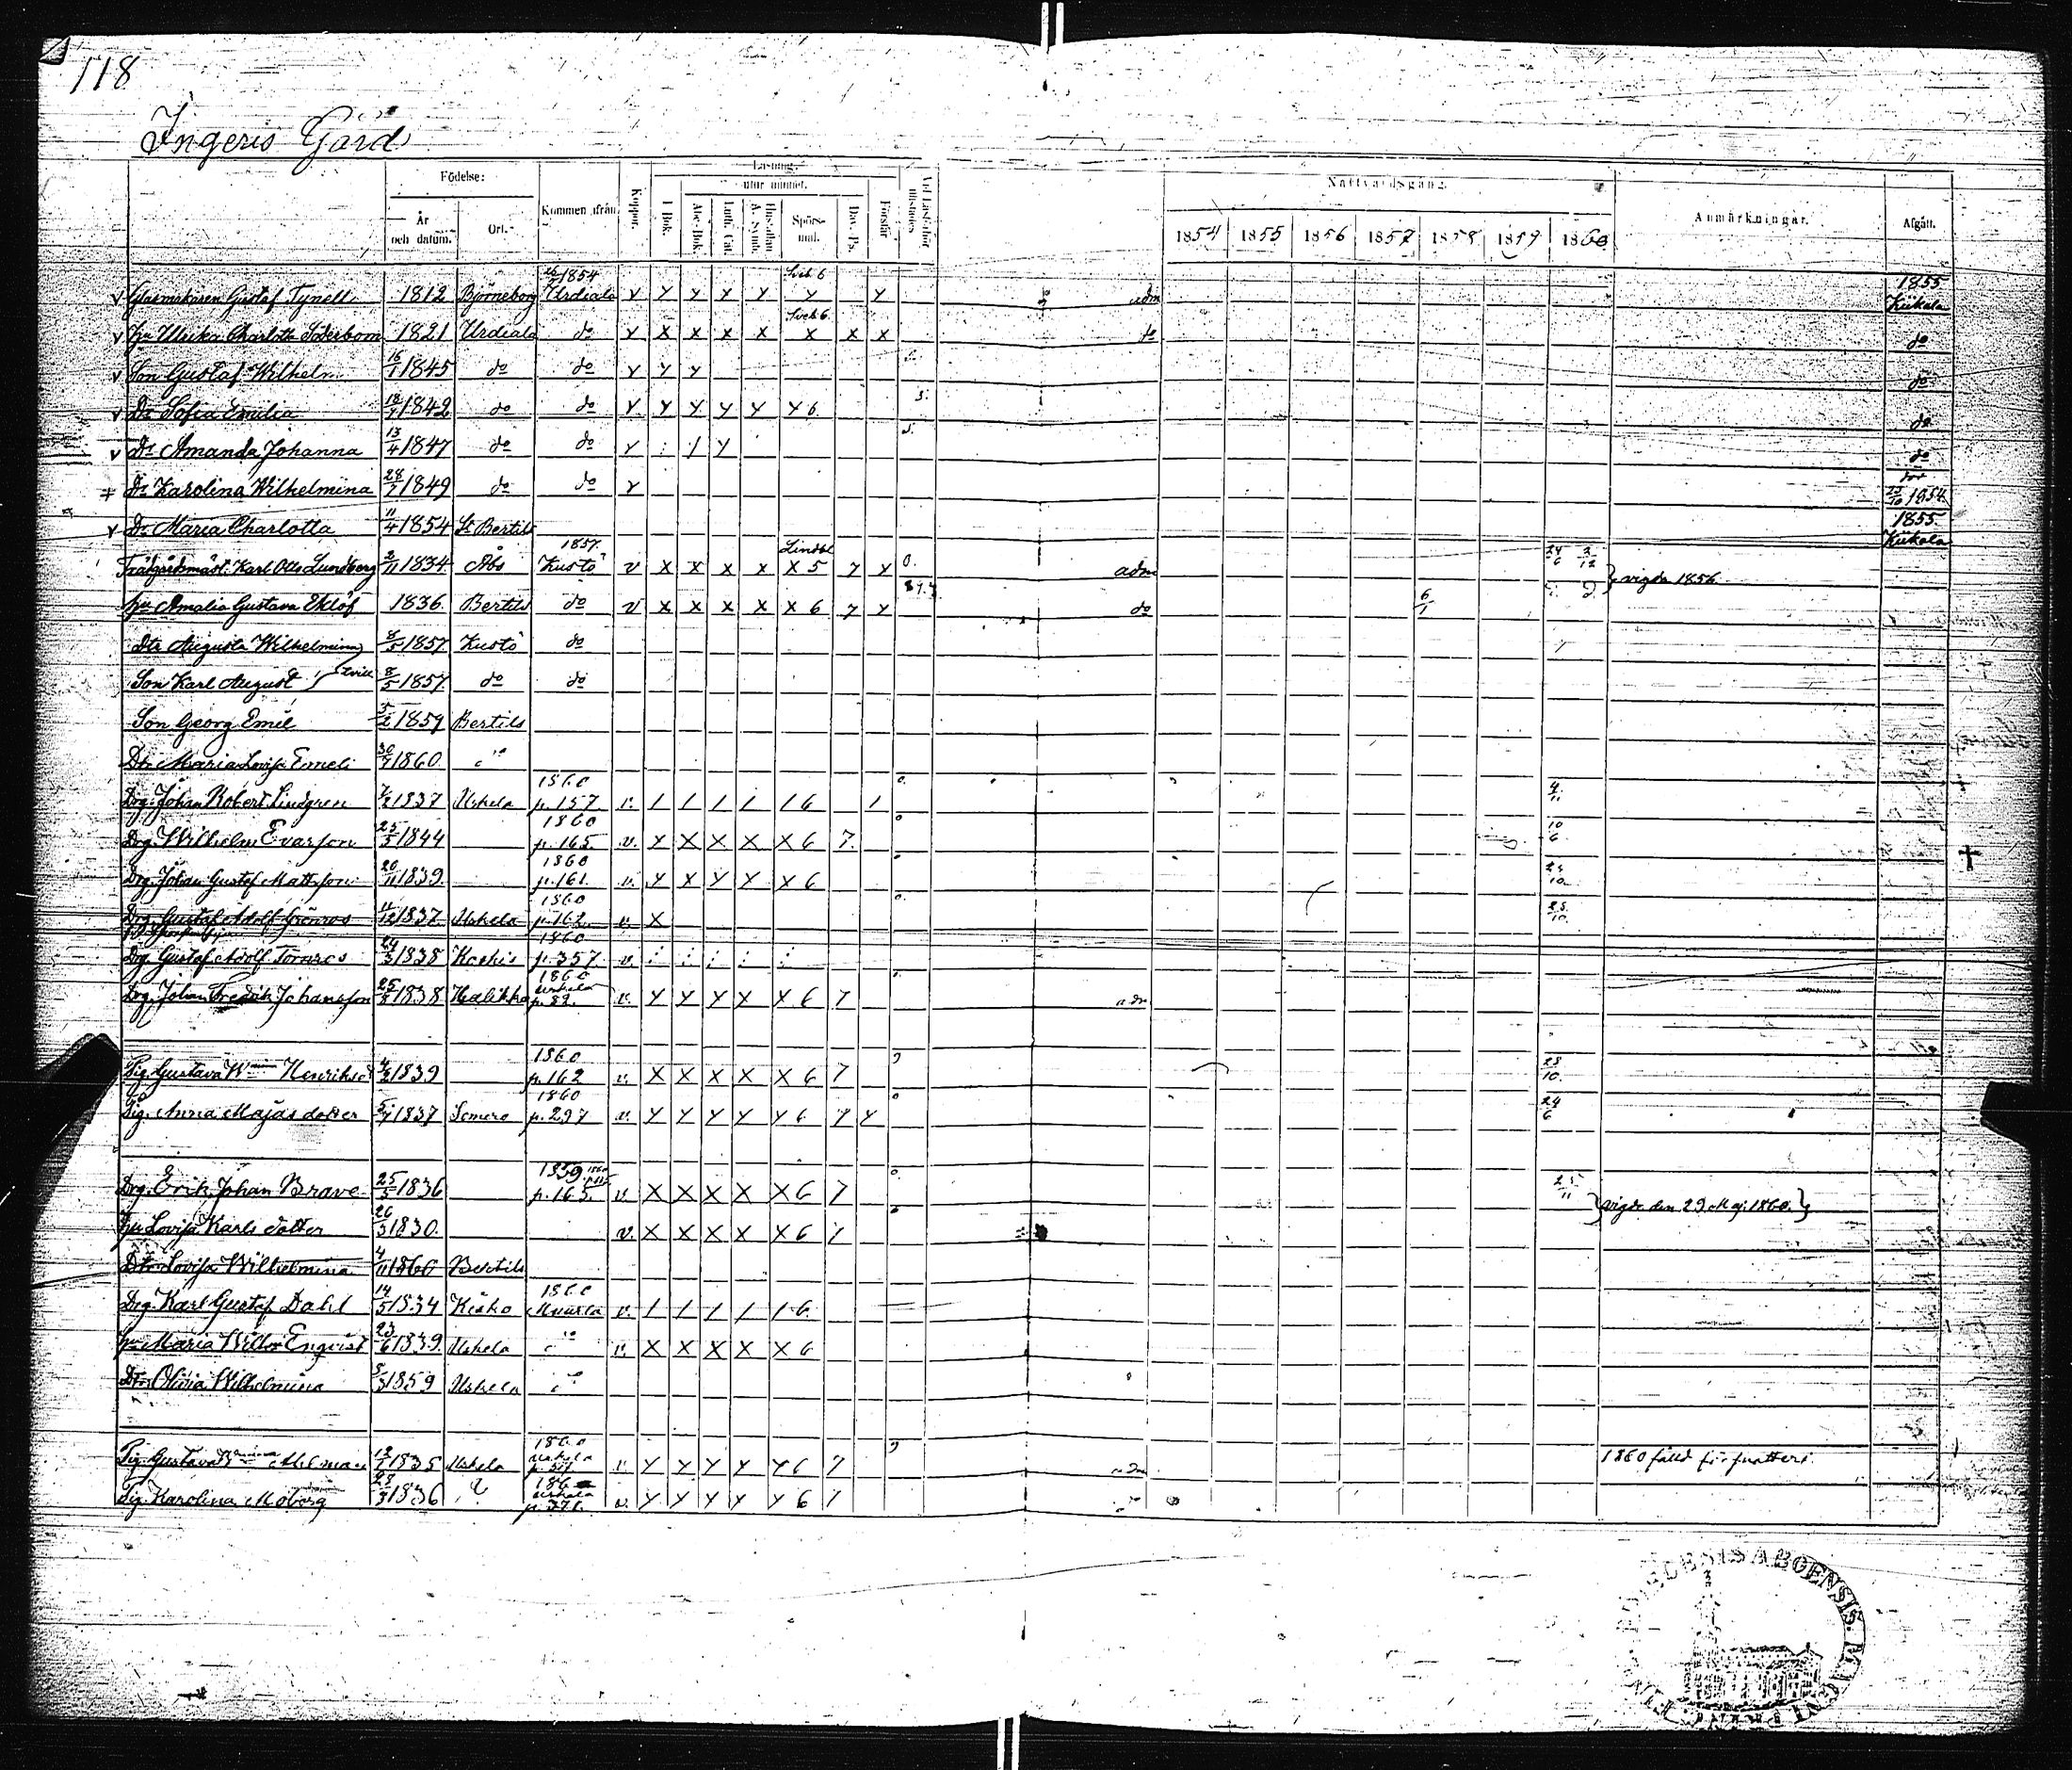 118
Ingeris Gård
Födelse: Läsning: Nattvardsgång
utur minnet.
År och datum. Ort. Kommen ifrån Koppor. I Bok. Abc-Bok. Luth. Cat. Hustaflan A. Symb. Spörsmål. Dav. Ps. Förstår 1854 1855 1856 1857 1858 1859 1860 Anmärkningar. Afgått.
1854 Sveb 6 1855
v Glasmakaren Gustaf Tynell 1812 Björneborg Urdiala v y y x y y y adm Kiikala
Sveb 6
v Hu Ulrika Charlotta Söderbom 1821 Urdiala do y x x x x x x x do do
v Son Gustaf Wilhelm 16/1 1845 do do y y y do
v Dr Sofia Emilia 18/7 1842 do do y y y y y y 6 s. do
v Dr Amanda Johanna 13/4 1847 do do y : / y s. do
+ Dr Karolina Wilhelmina 28/7 1849 do do y död 23/10 1854
v Dr Maria Charlotta 11/4 1854 St Bertils 1855 Kiikala
1857. Lindbl
Trädgårdsmäst. Karl Otto Lundberg 2/11 1834 Åbo Kustö v x x x x x 5 7 y 0. adm 24/6 2/12 } vigda 1856
hu Amalia Gustava Eklöf 1836. Bertils do v x x x x x 6 7 y do 6/1
Dtr Augusta Wilhelmina 8/5 1857 Kustö do
Son Karl August } tvill 8/5 1857 do do
Son Georg Emil 5/2 1859 Bertils
Dtr Maria Lovisa Emeli 30/7 1860 do
1860
Drg. Johan Robert Lindgren 7/2 1837 Uskela p. 157 v. / / / / / 6 / 0. 4/11
1860
Drg. Wilhelm Evarsson 25/5 1844 p. 165 v. y x x x x 6 7. 0 10/6
1860
Drg. Johan Gustaf Mattsson 20/11 1839. p. 161. v. y x y y x 6 10
1860
Drg. Gustaf Adolf Grönroos 11/12 1837 Uskela p. 162 v. x 0. 28/10.
1860
Drg. Gustaf Adolf Törnros 24/3 1838 p. 357 v. : : : : :
1860 Uskela
Drg. Johan Fredrik Johansson 25/5 1838 Halikko p. 82. v. y y y x x 6 7 adm
1860
Pig. Gustava Wmina Henriksd 4/2 1839 p. 162 v. x x x x x 6 7 28/10.
1860
Pig. Anna Majas dotter 5/7 1837 Somero p. 297 v. y y y y y 6 7 y 0 24/6
1859
Drg. Erik Johan Brave 25/5 1836 p. 165. v. x x x x x 6 7 0 25/11 } vigde den 29 Maj 1860. }
hu Lovisa Karls dotter 26/3 1830. v. x x x x x 6 7
Dtr Lovisa Wilhelmina 4/11 1860 Bertils
1860
Drg. Karl Gustaf Dahl 14/5 1834 Kisko Muurla v. / / / / / 6.
hu Maria Wilhna Enqvist 23/6 1839. Uskela do v. x x x x x 6
Dtr Olivia Wilhelmina 5/3 1859 Uskela do
1860
Pig. Gustava 1835 Uskela Uskela v. y y y y y 6 7 adm 1860
Pig. Karolina Moberg 28/3 1836 Uskela p. 371. v. y y y y y 6 7
ABOENSIS